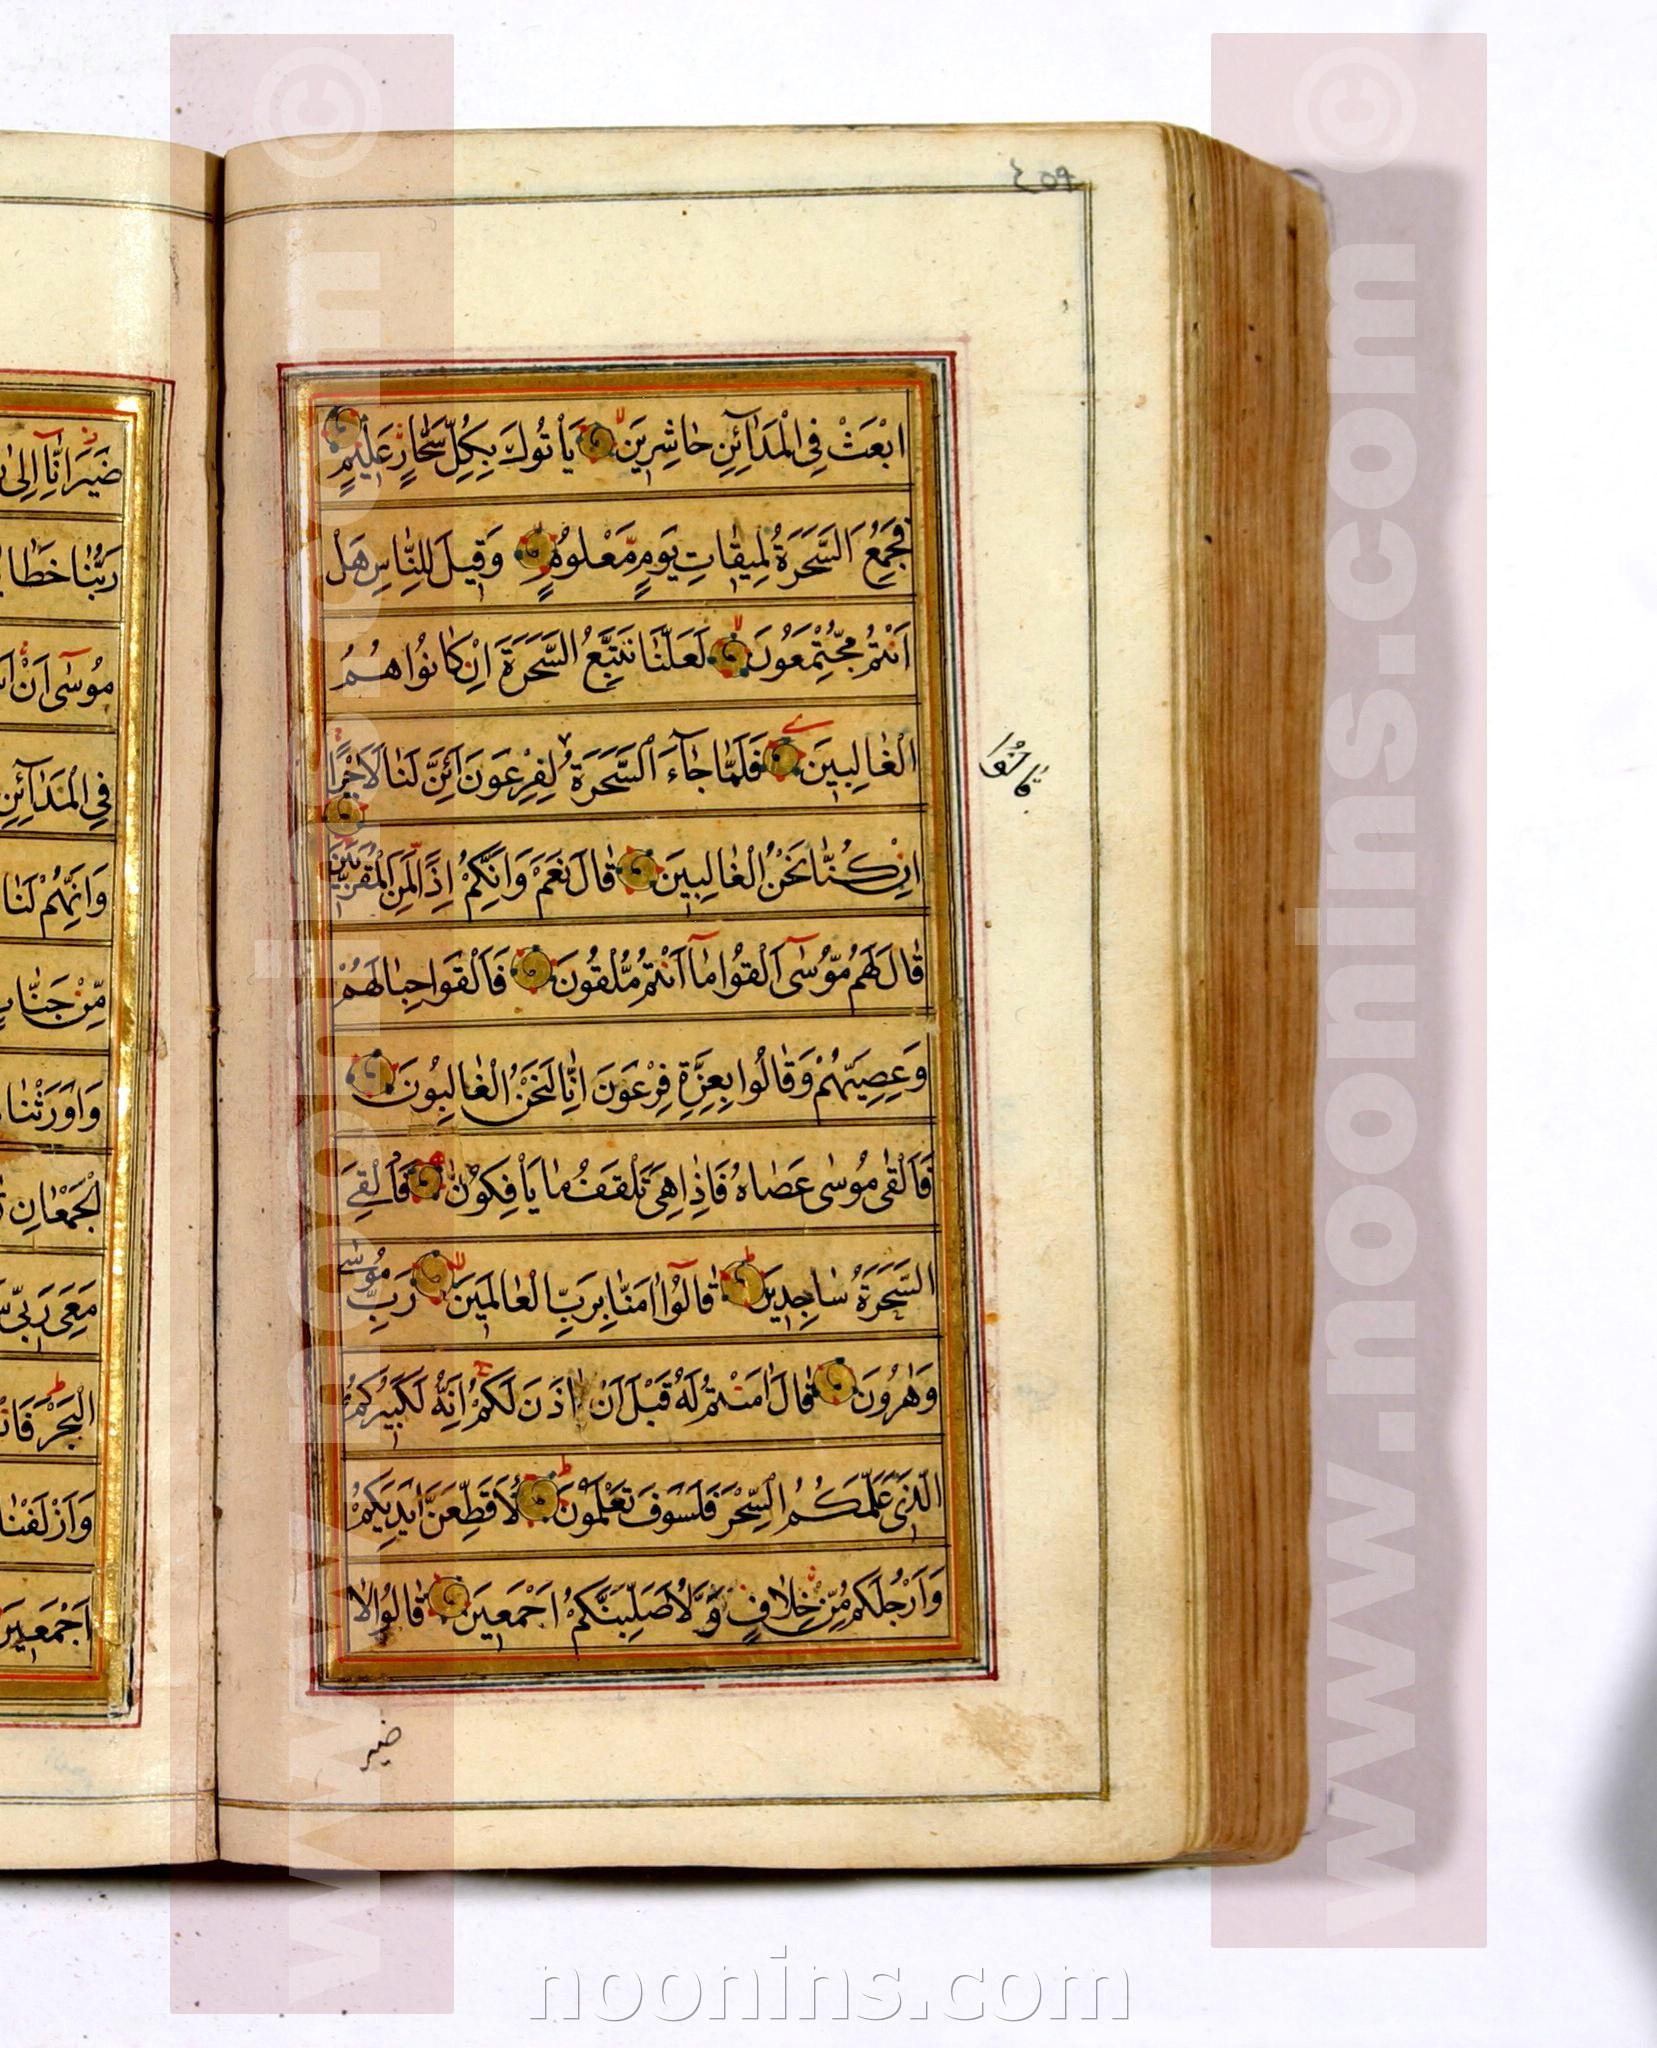 ٤٥٩
ابْعَثْ فِي الْمَدَآئِنِ حَاشِرِينَ يَأْتُوكَ بِكُلِّ سَحَّارٍ عَلِيمٍ
فَجُمِعَ السَّحَرَةُ لِمِيقَاتِ يَوْمٍ مَّعْلُومٍ وَقِيلَ لِلنَّاسِ هَلْ
اَنْتُمْ مُجْتَمِعُونَ لَعَلَّنَا نَتَّبِعُ السَّحَرَةَ اِنْ كَانُوا هُمُ
الْغَالِبِينَ فَلَمَّا جَآءَ السَّحَرَةُ لِفِرْعَوْنَ اَئِنَّ لَنَا لَاَجْرًا
قالوا
اِنْ كُنَّا نَحْنُ الْغَالِبِينَ قَالَ نَعَمْ وَاِنَّكُمْ اِذًا لَّمِنَ الْمُقَرَّبِينَ
قَالَ لَهُمْ مُّوسٰٓى اَلْقُوا مَآ اَنْتُمْ مُّلْقُونَ فَاَلْقَوْا حِبَالَهُمْ
وَعِصِيَّهُمْ وَقَالُوا بِعِزَّةِ فِرْعَوْنَ اِنَّا لَنَحْنُ الْغَالِبُونَ
فَاَلْقٰى مُوسٰى عَصَاهُ فَاِذَا هِيَ تَلْقَفُ مَا يَأْفِكُونَ فَاُلْقِيَ
السَّحَرَةُ سَاجِدِينَ قَالُوٓا اٰمَنَّا بِرَبِّ الْعَالَمِينَ رَبِّ مُوسٰى
وَهٰرُونَ قَالَ اٰمَنْتُمْ لَهُ قَبْلَ اَنْ اٰذَنَ لَكُمْ اِنَّهُ لَكَبِيرُكُمُ
الَّذِي عَلَّمَكُمُ السِّحْرَ فَلَسَوْفَ تَعْلَمُونَ لَاُقَطِّعَنَّ اَيْدِيَكُمْ
وَاَرْجُلَكُمْ مِّنْ خِلَافٍ وَّلَاُصَلِّبَنَّكُمْ اَجْمَعِينَ قَالُوا لَا
ضير
ضَيْرَ اِنَّآ اِلٰى
رَبُّنَا خَطَايَا
مُوسٰٓى اَنْ
فِي الْمَدَآئِنِ
وَاِنَّهُمْ لَنَا
مِّنْ جَنَّاتٍ
وَاَوْرَثْنَا
الْجَمْعَانِ
مَعِيَ رَبِّي
الْبَحْرَ
وَاَزْلَفْنَا
اَجْمَعِينَ
www.noonins.com ©
www.noonins.com ©
noonins.com